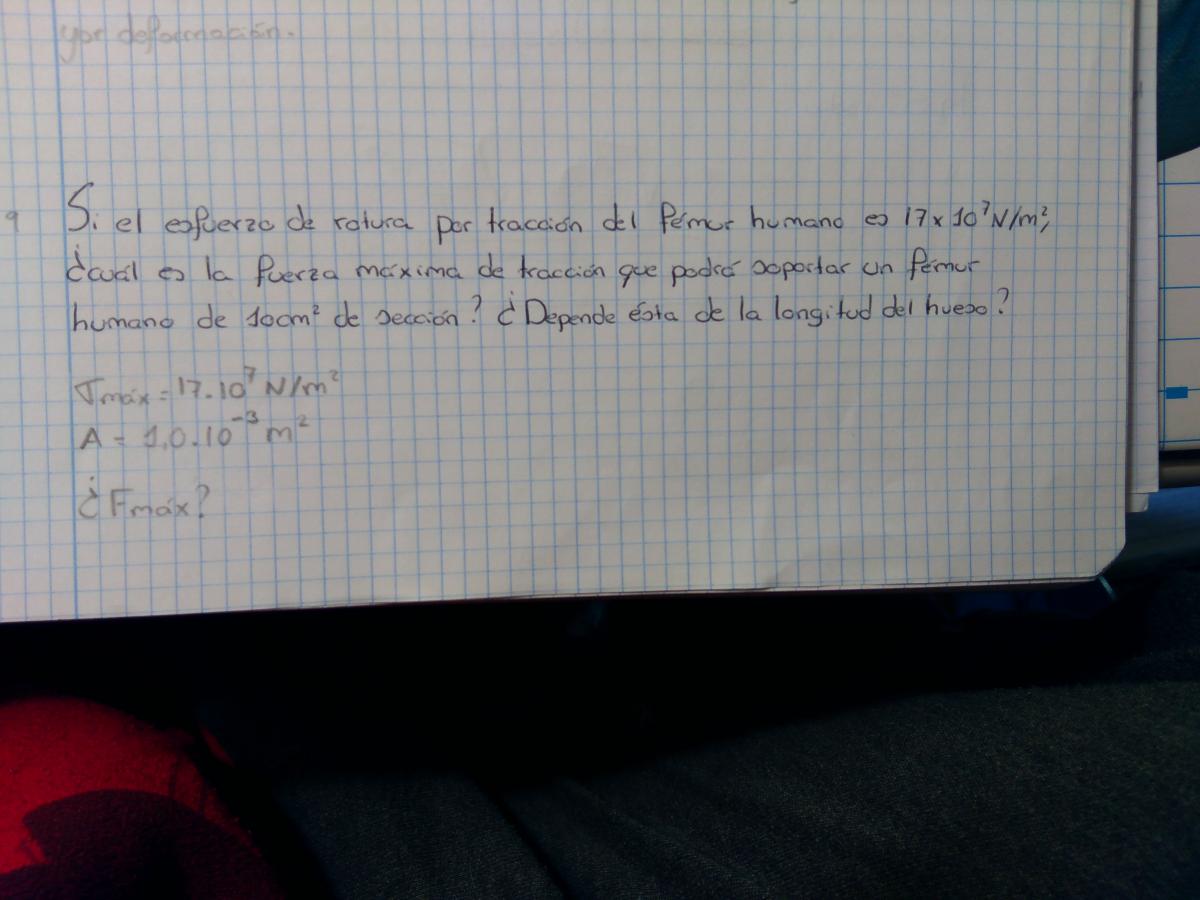 yor deformación.
9 Si el esfuerzo de rotura por tracción del fémur humano es 17 x 10⁷ N/m²,
¿cuál es la fuerza máxima de tracción que podrá soportar un fémur
humano de 10cm² de sección? ¿Depende ésta de la longitud del hueso?
σmáx = 17.10⁷ N/m²
A = 1,0.10⁻³ m²
¿Fmáx?